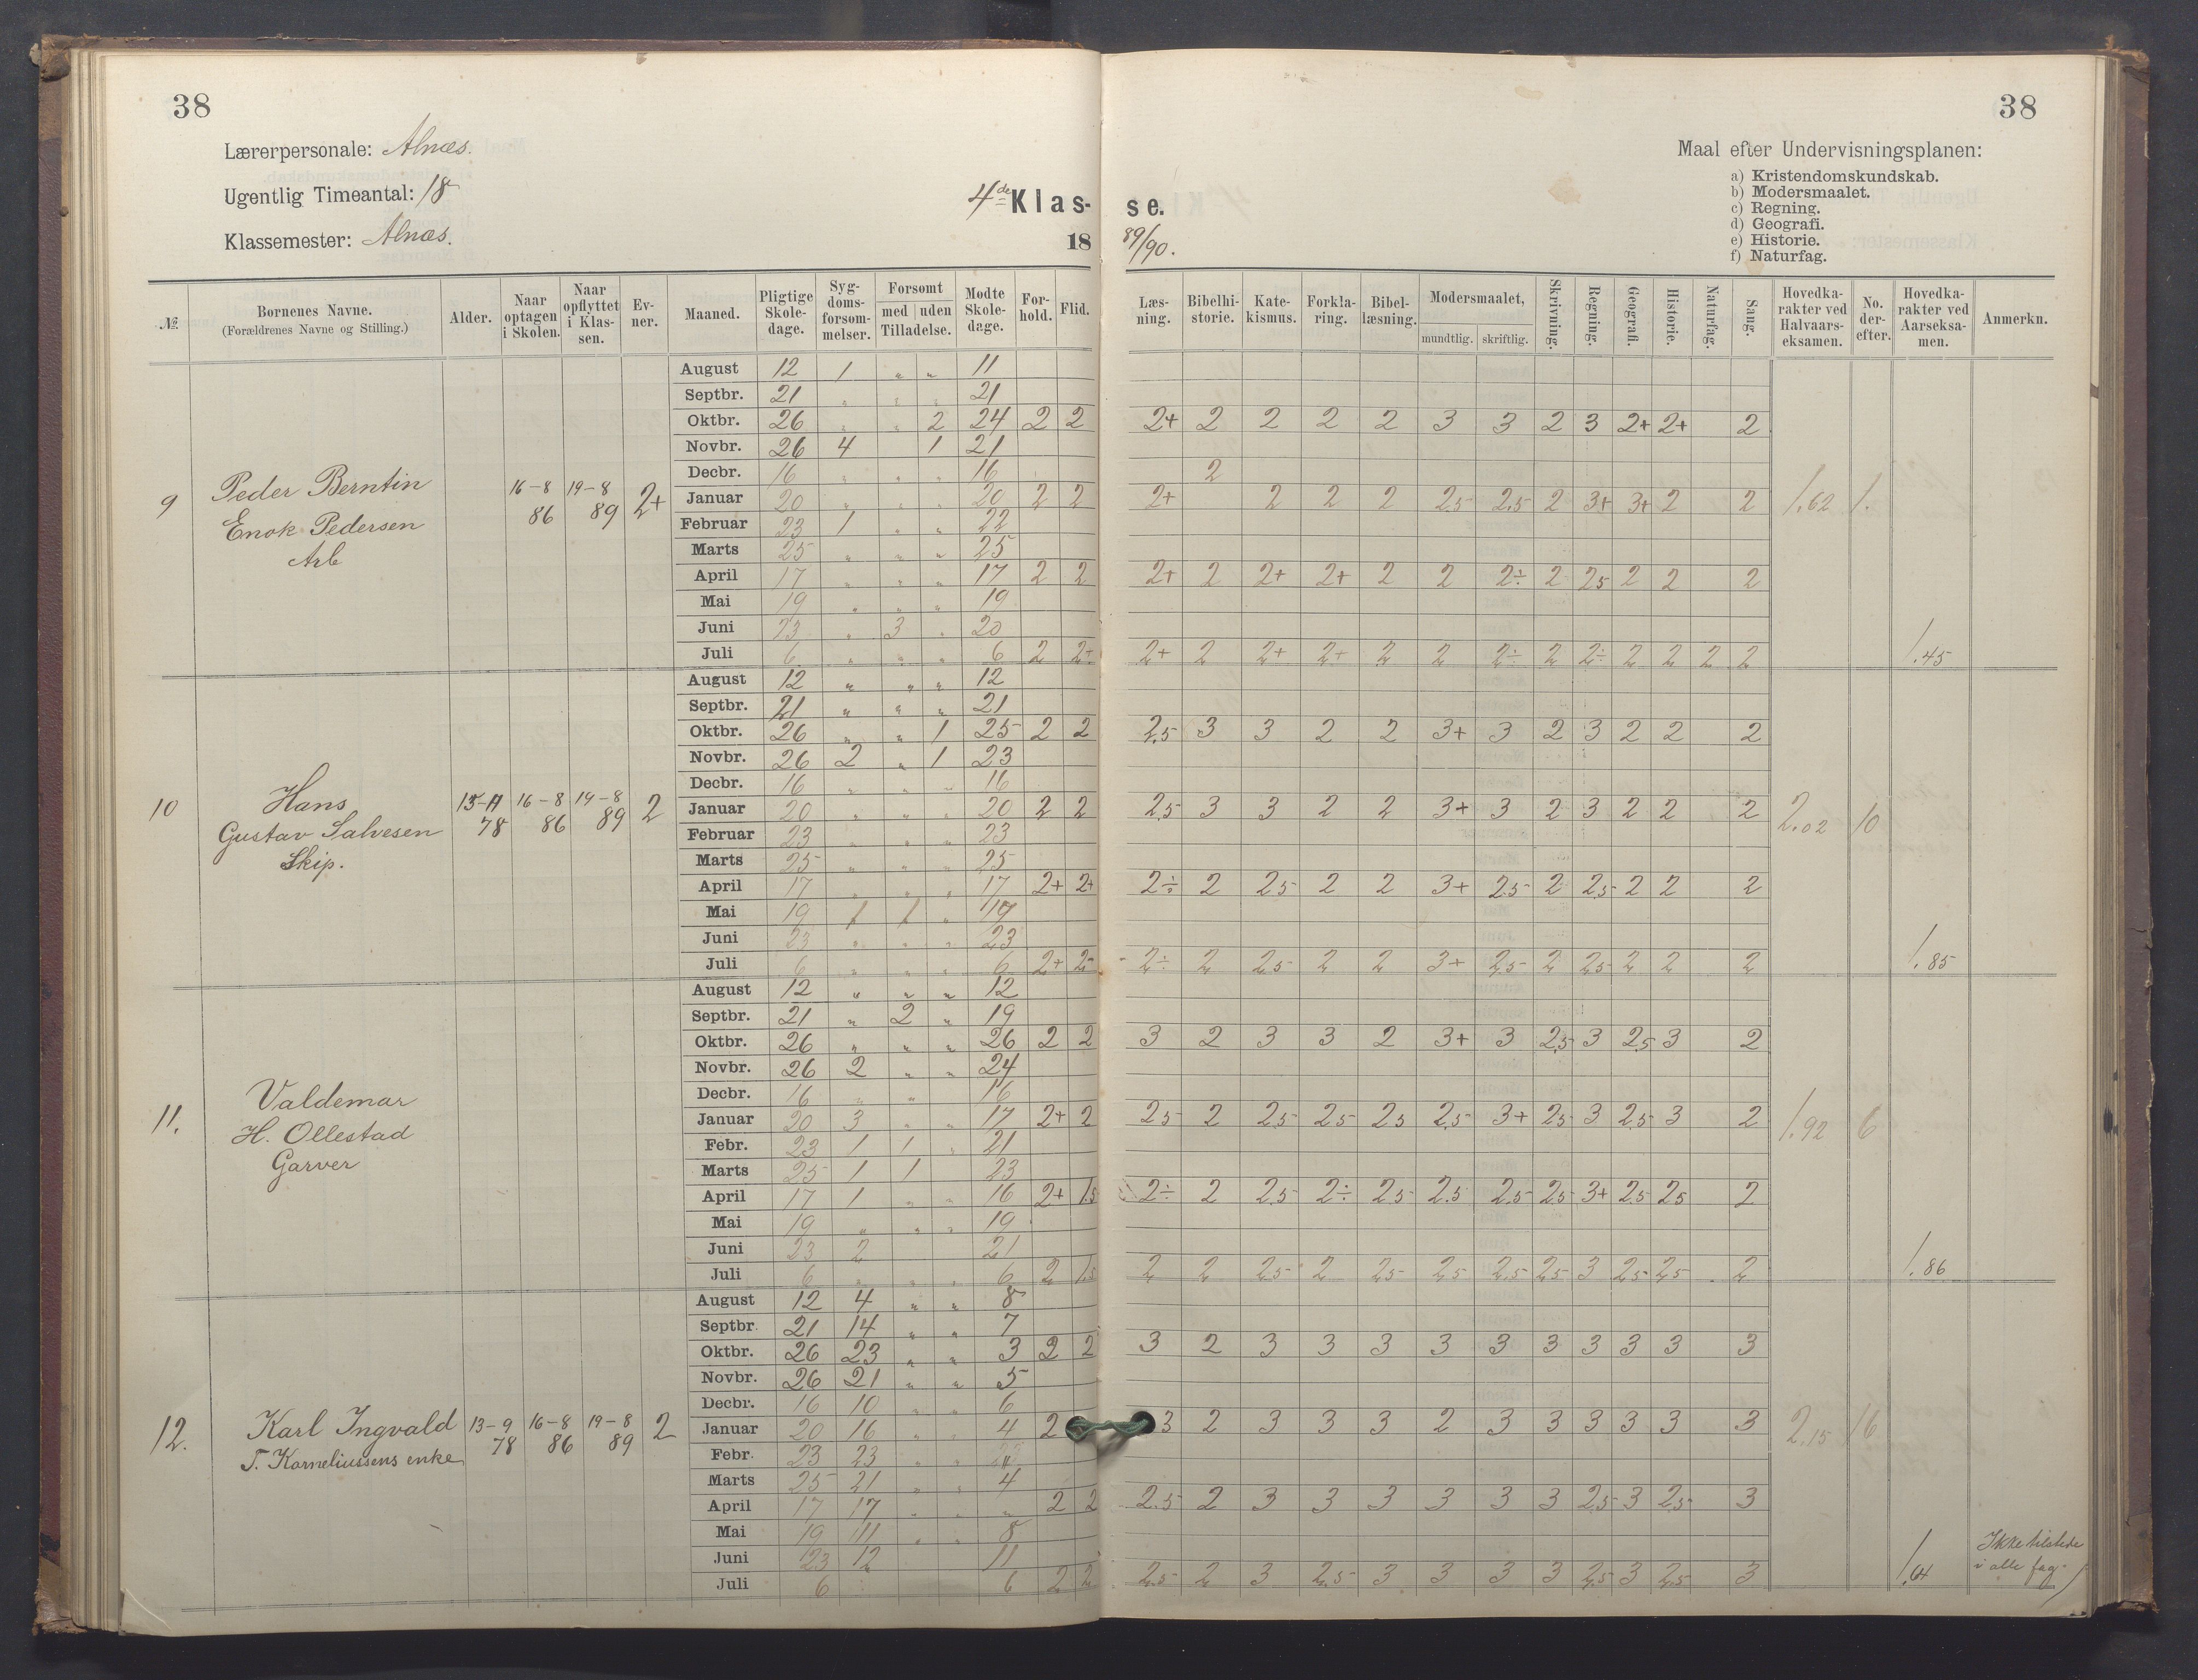 38
38
Lærerpersonale: Alnæs.
Ugentlig Timeantal: 18
Klassemester: Alnæs.
4de Klas-
se.
18
89/90.
Maal efter Undervisningsplanen:
a) Kristendomskundskab.
b) Modersmaalet.
c) Regning.
d) Geografi.
e) Historie.
f) Naturfag.
№ Børnenes Navne. (Forældrenes Navne og Stilling.) Alder. Naar optagen i Skolen. Naar opflyttet i Klassen. Evner. Maaned. Pligtige Skoledage. Sygdomsforsømmelser. Forsømt med uden Tilladelse. Mødte Skoledage. Forhold. Flid. Læsning. Bibelhistorie. Katekismus. Forklaring. Bibellæsning. Modersmaalet, mundtlig. skriftlig. Skrivning. Regning. Geografi. Historie. Naturfag. Sang. Hovedkarakter ved Halvaarseksamen. No. derefter. Hovedkarakter ved Aarseksamen. Anmerkn.
9 Peder Berntin
Enok Pedersen
Arb
16-8 86 19-8 89 2+
August 12 1 „ „ 11
Septbr. 21 „ „ „ 21
Oktbr. 26 „ „ 2 24 2 2 2+ 2 2 2 2 3 3 2 3 2+ 2+ 2
Novbr. 26 4 1 21
Decbr. 16 „ „ „ 16 2
Januar 20 „ „ „ 20 2 2 2+ 2 2 2 2.5 2.5 2 3+ 3+ 2 2 1.62 1.
Februar 23 1 „ „ 22
Marts 25 „ „ „ 25
April 17 „ „ „ 17 2 2 2+ 2 2+ 2+ 2 2 2÷ 2 2.5 2 2 2
Mai 19 „ „ „ 19
Juni 23 „ 3 „ 20
Juli 6 „ „ „ 6 2 2+ 2+ 2 2+ 2+ 2 2 2÷ 2 2÷ 2 2 2 2 1.45
10 Hans
Gustav Salvesen
Skip.
15-11 78 16-8 86 19-8 89 2
August 12 „ „ „ 12
Septbr. 21 „ „ „ 21
Oktbr. 26 „ „ 1 25 2 2 2.5 3 3 2 2 3+ 3 2 3 2 2 2
Novbr. 26 2 „ 1 23
Decbr. 16 „ „ „ 16
Januar 20 „ „ „ 20 2 2 2.5 3 3 2 2 3+ 3 2 3 2 2 2 2.02 10
Februar 23 „ „ „ 23
Marts 25 „ „ „ 25
April 17 „ „ „ 17 2+ 2+ 2÷ 2 2.5 2 2 3+ 2.5 2 2.5 2 2 2
Mai 19 1 1 „ 17
Juni 23 „ „ „ 23
Juli 6 „ „ „ 6 2+ 2÷ 2 2.5 2 2 3+ 2.5 2 2.5 2 2 2 1.85
11. Valdemar
H. Ollestad
Garver
August 12 „ „ „ 12
Septbr. 21 „ 2 „ 19
Oktbr. 26 „ „ „ 26 2 2 3 2 3 3 2 3+ 3 2.5 3 2.5 3 2
Novbr. 26 2 „ „ 24
Decbr. 16 „ „ 16
Januar 20 3 „ „ 17 2+ 2 2.5 2 2.5 2.5 2.5 2.5 3+ 2.5 3 2.5 3 2 1.92 6
Febr. 23 1 1 „ 21
Marts 25 1 1 23
April 17 1 „ „ 16 2+ 1.5 2÷ 2 2.5 2÷ 2.5 2.5 2.5 2.5 3+ 2.5 2.5 2
Mai 19 „ „ „ 19
Juni 23 2 21
Juli 6 „ „ „ 6 2 1.5 2 2 2.5 2 2.5 2.5 2.5 2.5 3 2.5 2.5 2 1.86
12. Karl Ingvald
T. Korneliussens enke
13-9 78 16-8 86 19-8 89 2
August 12 4 „ „ 8
Septbr 21 14 „ „ 7
Oktbr. 26 23 „ „ 3 2 2 3 2 3 3 3 3 3 3 3 3 3 3
Novbr. 26 21 „ „ 5
Decbr. 16 10 „ „ 6
Januar 20 16 „ „ 4 2 3 2 3 3 3 2 3 3 3 3 3 3 2.15 16
Febr. 23 23 „ „
Marts 25 21 „ „ 4
April 17 17 „ „ „ 2 2 2.5 2 3 3 3 3 3 3 2.5 3 2.5 3
Mai 19 11 „ „ 8
Juni 23 12 11
Juli 6 6 2 2 2.5 2 3 2.5 3 3 3 3 2.5 3 2.5 3 1.64 Ikke tilstede
i alle fag.